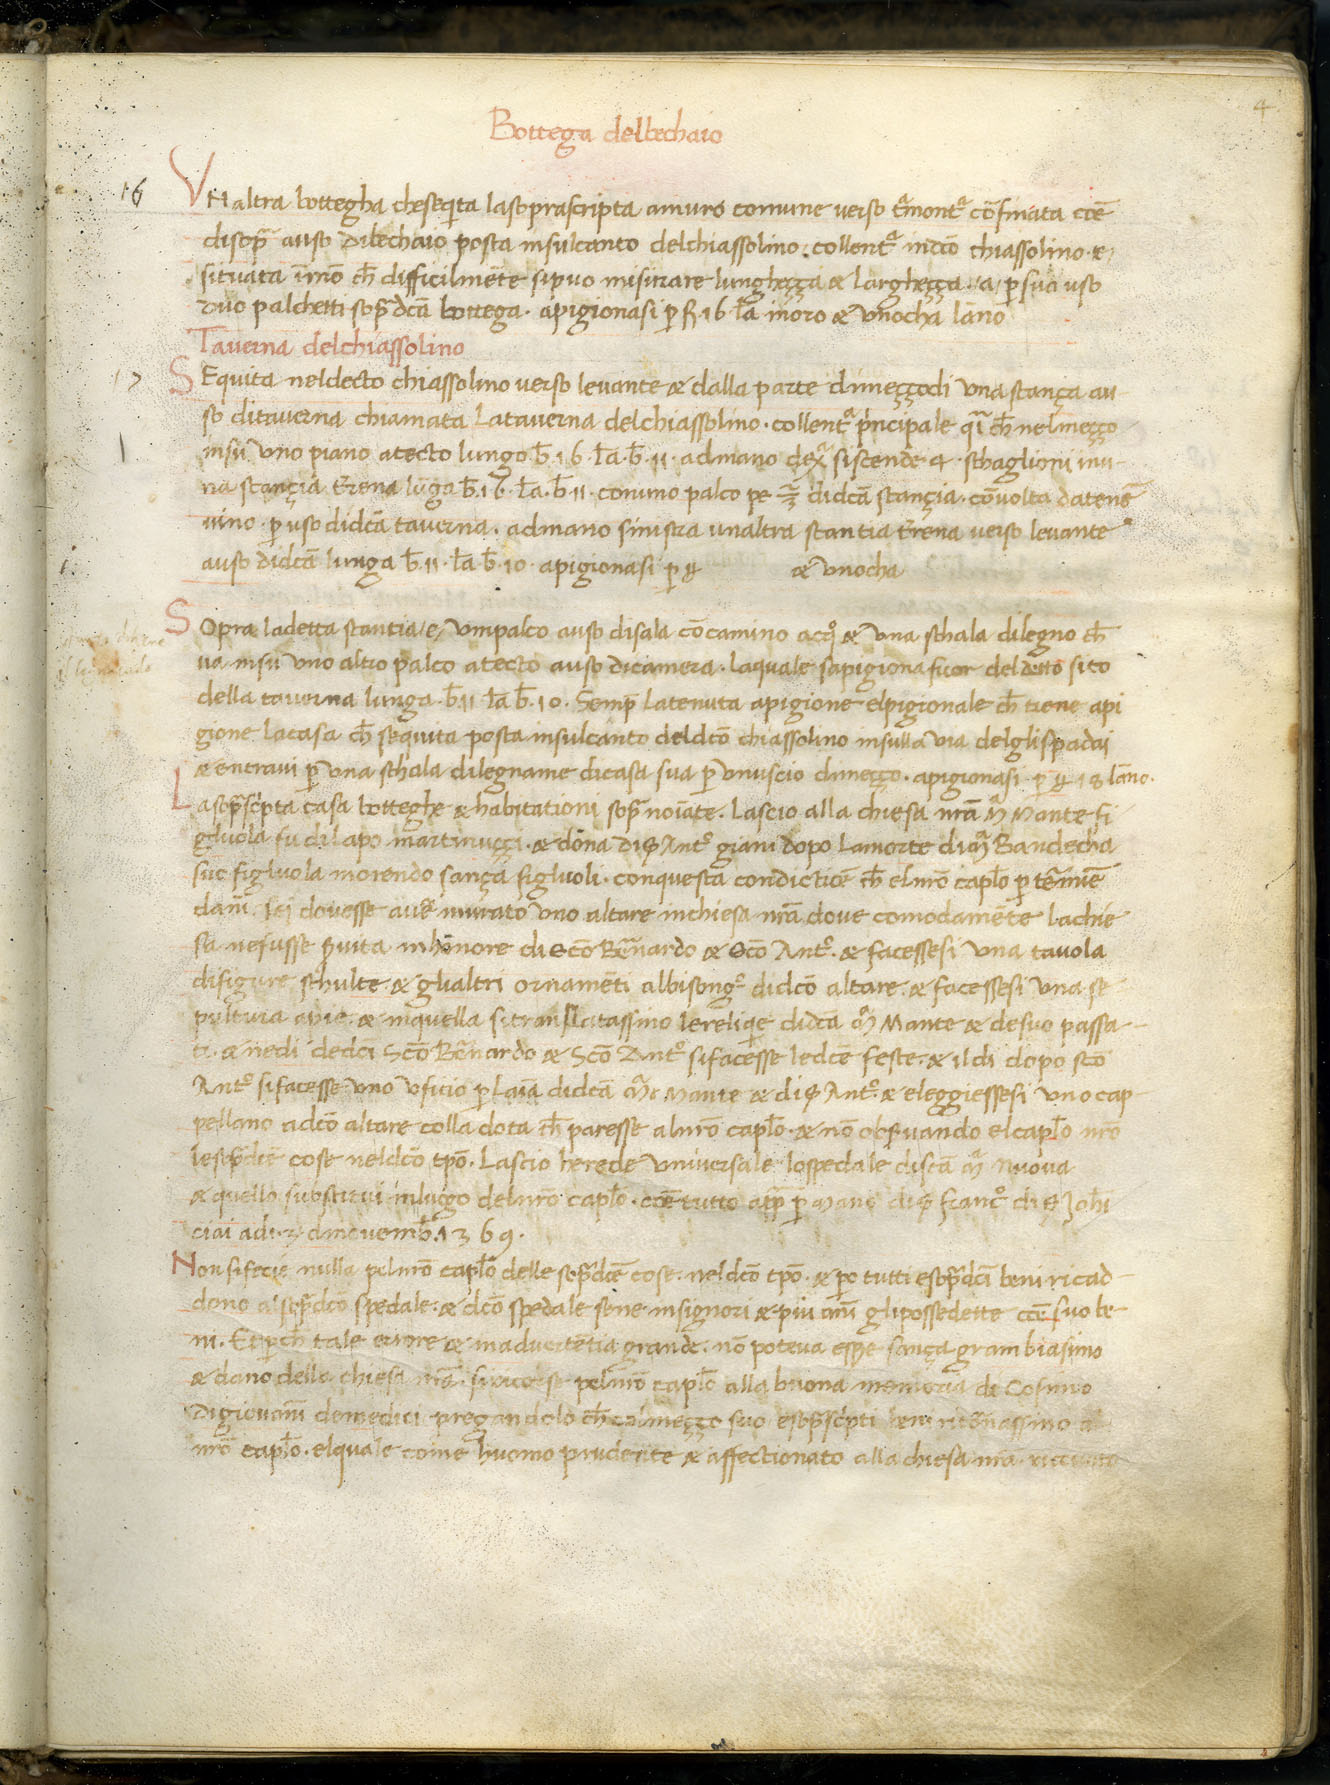 4
Bottega delbechaio
16
VN altra bottegha cheseq̃ta lasoprascripta amuro comune verso t̃montᵃ cõfinata cc̃e
disop̃ auso dibechaio posta insulcanto delchiassolino. collentᵃ indc̃o chiassolino. e/
situata ĩmo ch̃ difficilmẽte sipuo misurare lunghezza & larghezza. a/ p̃ suo uso
duo palchetti sop̃ dc̃a bottega. apigionasi p̃ 16 l̃a inoro & unocha lãno
Taverna delchiassolino
17
SEquita neldecto chiassolino verso levante & dalla parte dimezzodi una stança au-
so ditaverna chiamata Lataverna delchiassolino. collentᵃ p̃ncipale q̃ ch̃ nelmezzo
insũ uno piano atecto lungo b̃. 16. l̃a. b̃. 11. admano dexᵃ siscende. 4. schaglioni inu-
na stançia t̃rena lũga b̃. 16. l̃a. b̃. 11. conuno palco pe didcã stançia. cõvolta datenẽ
uino. p̃ uso didcã taverna. admano sinistra unaltra stantia t̃rena verso levante
auso didcã lunga b̃. 11. l̃a b̃. 10. apigionasi p̃ & unocha
SOpra ladetta stantia/e/ umpalco auso disala cõcamino acq̃ & una schala dilegno ch̃
ua insu uno altro palco atecto auso dicamera. laquale sapigiona fuor deldetto sito
della taverna lunga. b̃. 11 l̃a b̃. 10. Semp̃ latenuta apigione elpigionale ch̃ tiene api
gione lacasa ch̃ sequita posta insulcanto deldc̃o chiassolino insulla via delglispadai
& entravi p̃ una schala dilegname dicasa sua p̃ unuscio dimezzo. apigionasi. p̃ 18 lãno.
Lasop̃sc̃pta casa botteghe & habitationi sop̃ noĩate. Lascio alla chiesa nr̃a Mᵃ Mante fi
gluola fu dilapo martinuzzi. & dõna di S Antᵒ giani dopo lamorte di Mᵃ Bandecha
sue figluola morendo sança figluoli. conquesta condictiõe ch̃ elnr̃o capl̃o p̃ tẽ
dam̃. Lei dovesse avẽ murato uno altare inchiesa nr̃a dove comodamẽte lachie
sa nefusse s̃vita inhonore di Sc̃o Bẽnardo & Sc̃o Antᵒ. & facessesi una tavola
difigure schulte & glialtri ornamẽti albisongᵒ didc̃o altare. & facessesi una se
pultura & inquella sitranslatassino lerelique didcã Mᵃ Mante & desuo passa-
ti. & nedi dedcĩ Sc̃o Bẽnardo & Sc̃o Antᵒ sifacesse ledcẽ feste. & ildi dopo sc̃o
Antᵒ sifacesse uno uficio p̃ Laĩa didcã Mante & di S Antᵒ. & eleggiessesi uno cap-
pellano adc̃o altare colla dota ch̃ paresse alnr̃o capl̃o. & nõ obs̃uando elcapl̃o nr̃o
lesop̃dcẽ cose neldc̃o tp̃o. Lascio herede universale lospedale discã Mᵃ nuova
& quello substitui inluogo delnr̃o capl̃o. cc̃e tutto app̃ p̃ mano di S francᵒ di S Joh̃i
ciai adi. 3. dinovemb̃. 1369.
Non sifecie nulla pelnr̃o capl̃o delle sop̃dcẽ cose. neldc̃o tp̃o. & p̃o tutti esop̃dcĩ beni ricad-
dono alsop̃dc̃o spedale. & dc̃o spedale sene insignori & piu ãni glipossedette cc̃e suo be
ni. Et p̃ch̃ tale errore & inadvertẽtia grande. nõ poteva ess̃e sança grambiasimo
& dãno della chiesa nr̃a. siricorse pelnr̃o capl̃o alla buona memoria di Cosimo
digiovanĩ demedici pregandolo ch̃ colmezzo suo esop̃sc̃pti beni ritornassino al
nr̃o capl̃o. elquale come huomo prudente & affectionato alla chiesa nr̃a